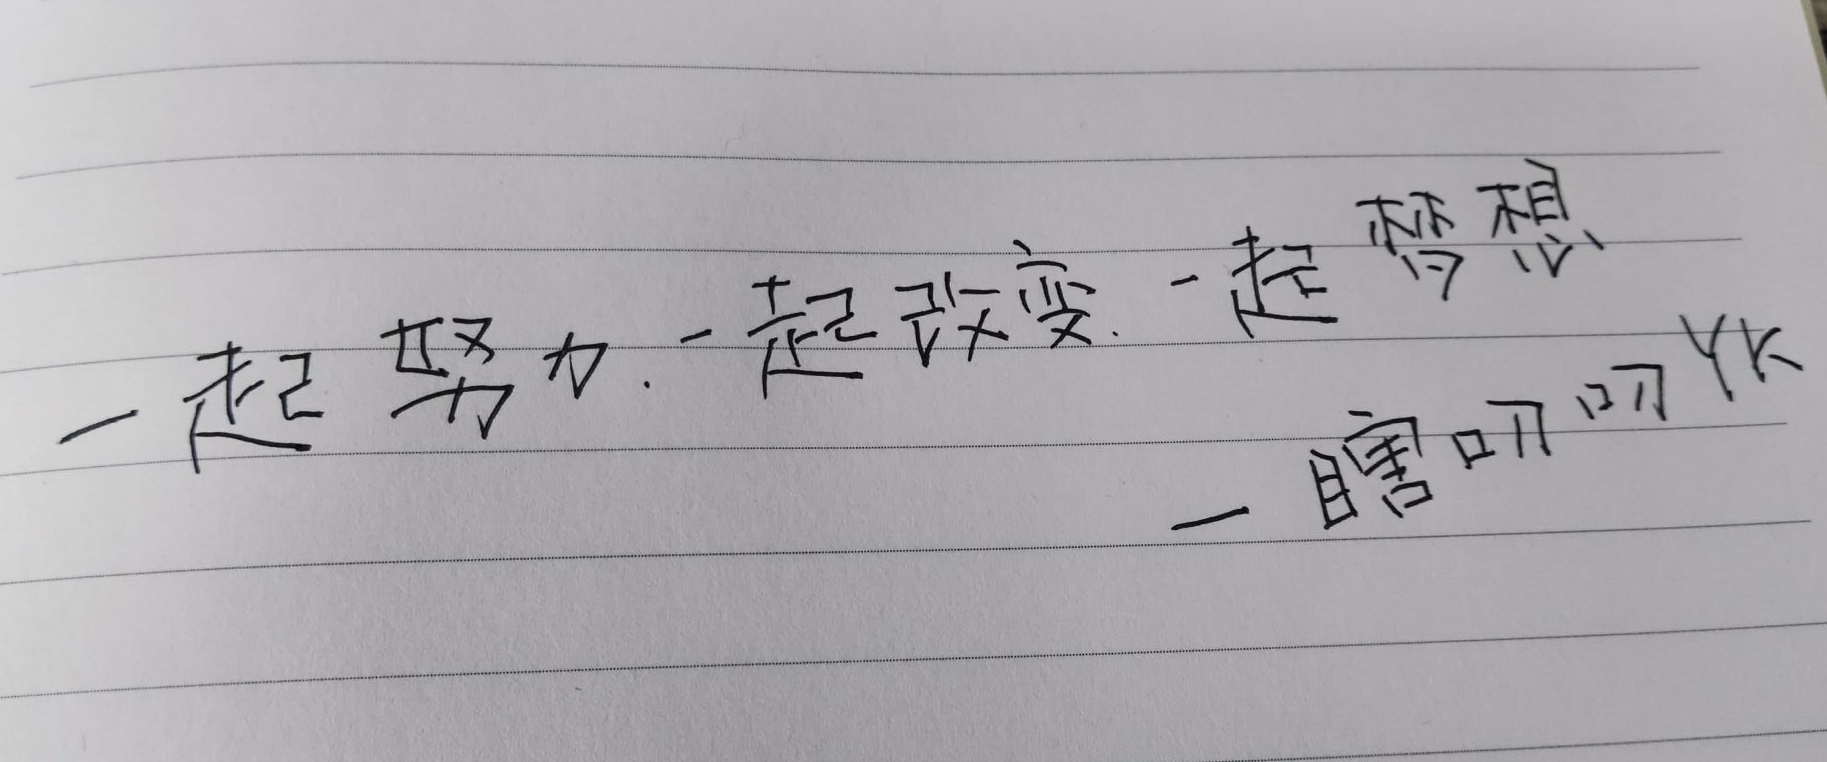 一起努力.一起改变.一起梦想
一瞎叨叨YK